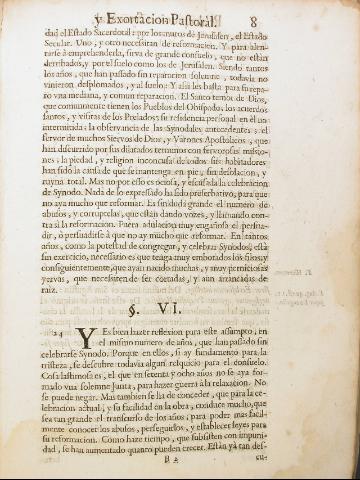 y Exortacion Pastoral. 8
dad el Estado Sacerdotal: por los muros de Jerusalen, el Estado
Secular. Uno, y otro necesitan de reformacion. Y para alen-
tarse à emprehenderla, sirva de grande consuelo, que no están
derribados, y por el suelo como los de Jerusalen. Siendo tantos
los años, que han passado sin reparacion solemne, todavia no
vinieron desplomados, y al suelo: Y assi les basta para su repa-
ro una mediana, y comun reparacion. El santo temor de Dios,
que comunmente tienen los Pueblos del Obispado, los acuerdos
santos, y visitas de los Prelados; su residencia personal en èl no
intermitida; la observancia de las Synodales antecedentes; el
fervor de muchos Siervos de Dios, y Varones Apostolicos, que
han discurrido por sus dilatados terminos con fervorosas missio-
nes; la piedad, y religion inconcusa de todos sus habitadores
han sido la causa de que se mantenga en pie, sin desolacion, y
ruyna total. Mas no por esso es ociosa, y escusada la celebracion
de Synodo. Nada de lo expressado ha sido preservativo, para que
no aya mucho que reformar. Es sin duda grande el numero de
abusos, y corruptelas, que están dando vozes, y llamando con-
tra sì la reformacion. Fuera adulacion muy engañosa el persua-
dir, ò persuadirse à que no ay mucho que reformar. En tantos
años, como la potestad de congregar, y celebrar Synodos, està
sin exercicio, necessario es que tenga muy embotados los filos; y
consiguientemente, que ayan nacido muchas, y muy perniciosas
yervas, que necessiten de ser cortadas, y aun arrancadas de
raiz.
§. VI.
24 Y Es bien hazer reflexion para este assumpto, en
el mismo numero de años, que han passado sin
celebrarse Synodo. Porque en ellos, si ay fundamento para la
tristeza, se descubre todavia algun resquicio para el consuelo.
Cosa lastimosa es, el que en setenta y ocho años no se aya for-
mado una solemne Junta, para hazer guerra à la relaxacion. No
se puede negar. Mas tambien se ha de conceder, que para la ce-
lebracion actual, y su facilidad en la obra, conduce mucho, que
sea tan grande el transcurso de los años, para poder mas facil-
mente conocer los abusos, perseguirlos, y establecer leyes para
su reformacion. Como haze tiempo, que subsisten con impuni-
dad, se han aumentado quanto pueden crecer. Están yà tan des-
B 2 cu-